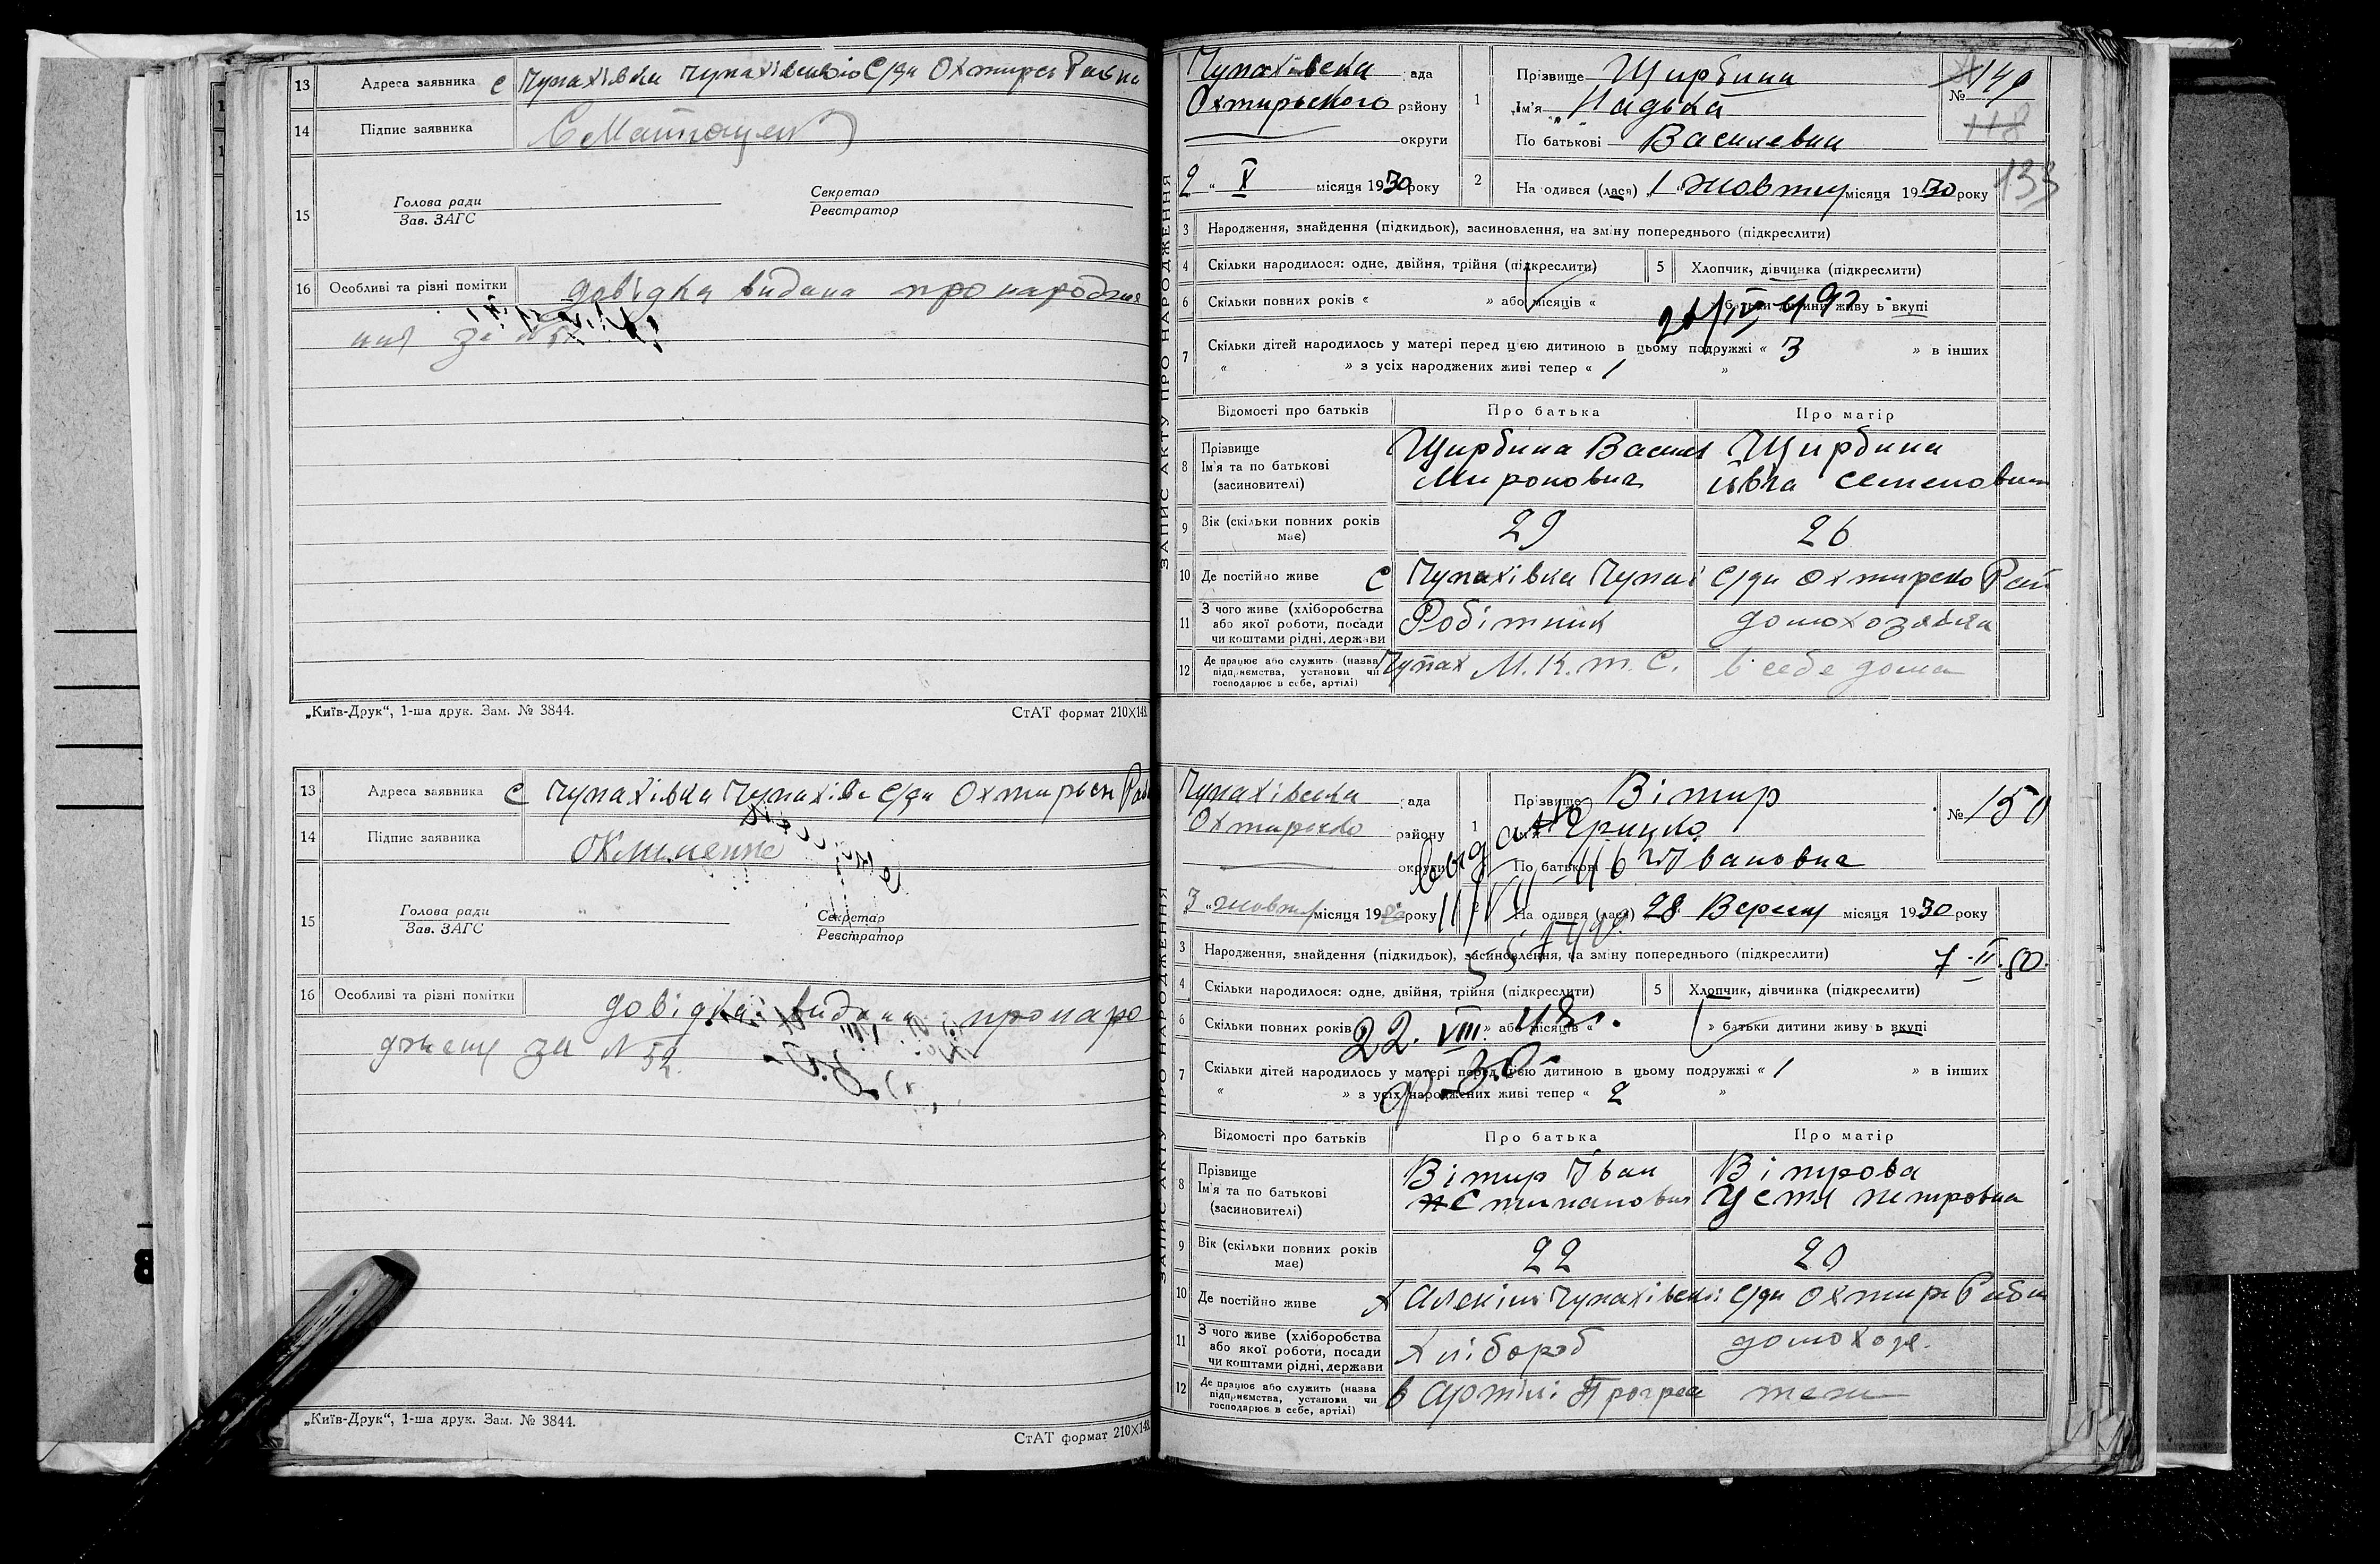 13 Адреса заявника с Чупахівка Чупахівської С/ди Охтирсь Району
14 Підпис заявника
15 Голова ради
Зав. ЗАГС
Секретар
Реєстратор
16 Особливі та різні помітки довідка видана про народже
ння за №
„Київ-Друк“, 1-ша друк. Зам. № 3844. СтАТ формат 210×148
13 Адреса заявника с Чупахівка Чупахів С/ди Охтирськ
14 Підпис заявника ОКлименко
15 Голова ради
Зав. ЗАГС
Секретар
Реєстратор
16 Особливі та різні помітки довідка видана про наро
дженн за № 52.
„Київ-Друк“, 1-ша друк. Зам. № 3844.
СтАТ формат 210×148
ЗАПИС АКТУ ПРО НАРОДЖЕННЯ
Чупахівська рада
Охтирського району
округи
2 „ X місяця 1930 року
1 Прізвище Щирбина
Ім'я Надька
По батькові Василевна
№ 149
118
133
2 На одився (лася) „1 жовтня місяця 1930 року
3 Народження, знайдення (підкидьок), засиновлення, на зміну попереднього (підкреслити)
4 Скільки народилося: одне, двійня, трійня (підкреслити) 5 Хлопчик, дівчинка (підкреслити)
6 Скільки повних років « » або місяців « » батьки дитини живу ь вкупі
7 Скільки дітей народилось у матері перед цією дитиною в цьому подружжі « 3 » в інших
« » з усіх народжених живі тепер « 1 »
Відомості про батьків Про батька Про матір
8 Прізвище
Ім'я та по батькові
(засиновителі)
Щирбина Васил
Миронович
Щирбина
Івга Семеновна
9 Вік (скільки повних років має) 29 26
10 Де постійно живе с Чупахівка Чупах С/ди Охтирсько Рай
11 З чого живе (хліборобства
або якої роботи, посади
чи коштами рідні, держави
Робітник домохозяйка
12 Де працює або служить (назва
підприємства, установи чи
господарює в себе, артілі)
Чупах М.К.т.С. в себе дома
ЗАПИС АКТУ ПРО НАРОДЖЕННЯ
Чупахівська рада
Охтирсько району
округи
3 „ жовтня місяця 1930 року
1 Прізвище Вітир
Ім'я Грицько
По батькові Івановича
№ 150
2 На одився (лася) 28 Вересня місяця 1930 року
3 Народження, знайдення (підкидьок), засиновлення, на зміну попереднього (підкреслити)
7.II.50.
4 Скільки народилося: одне, двійня, трійня (підкреслити) 5 Хлопчик, дівчинка (підкреслити)
6 Скільки повних років « » або місяців « » батьки дитини живу ь вкупі
22. VIII 48г.
7 Скільки дітей народилось у матері перед цією дитиною в цьому подружжі « 1 » в інших
« » з усіх народжених живі тепер « 2 »
Відомості про батьків Про батька Про матір
8 Прізвище
Ім'я та по батькові
(засиновителі)
Вітир Іван
Стипанович
Вітрова
Устя петровна
9 Вік (скільки повних років має) 22 20
10 Де постійно живе Х Чупахівської С/ди Охтирс
11 З чого живе (хліборобства
або якої роботи, посади
чи коштами рідні, держави
Хлібороб домохозя.
12 Де працює або служить (назва
підприємства, установи чи
господарює в себе, артілі)
в Артілі Прогрес теж